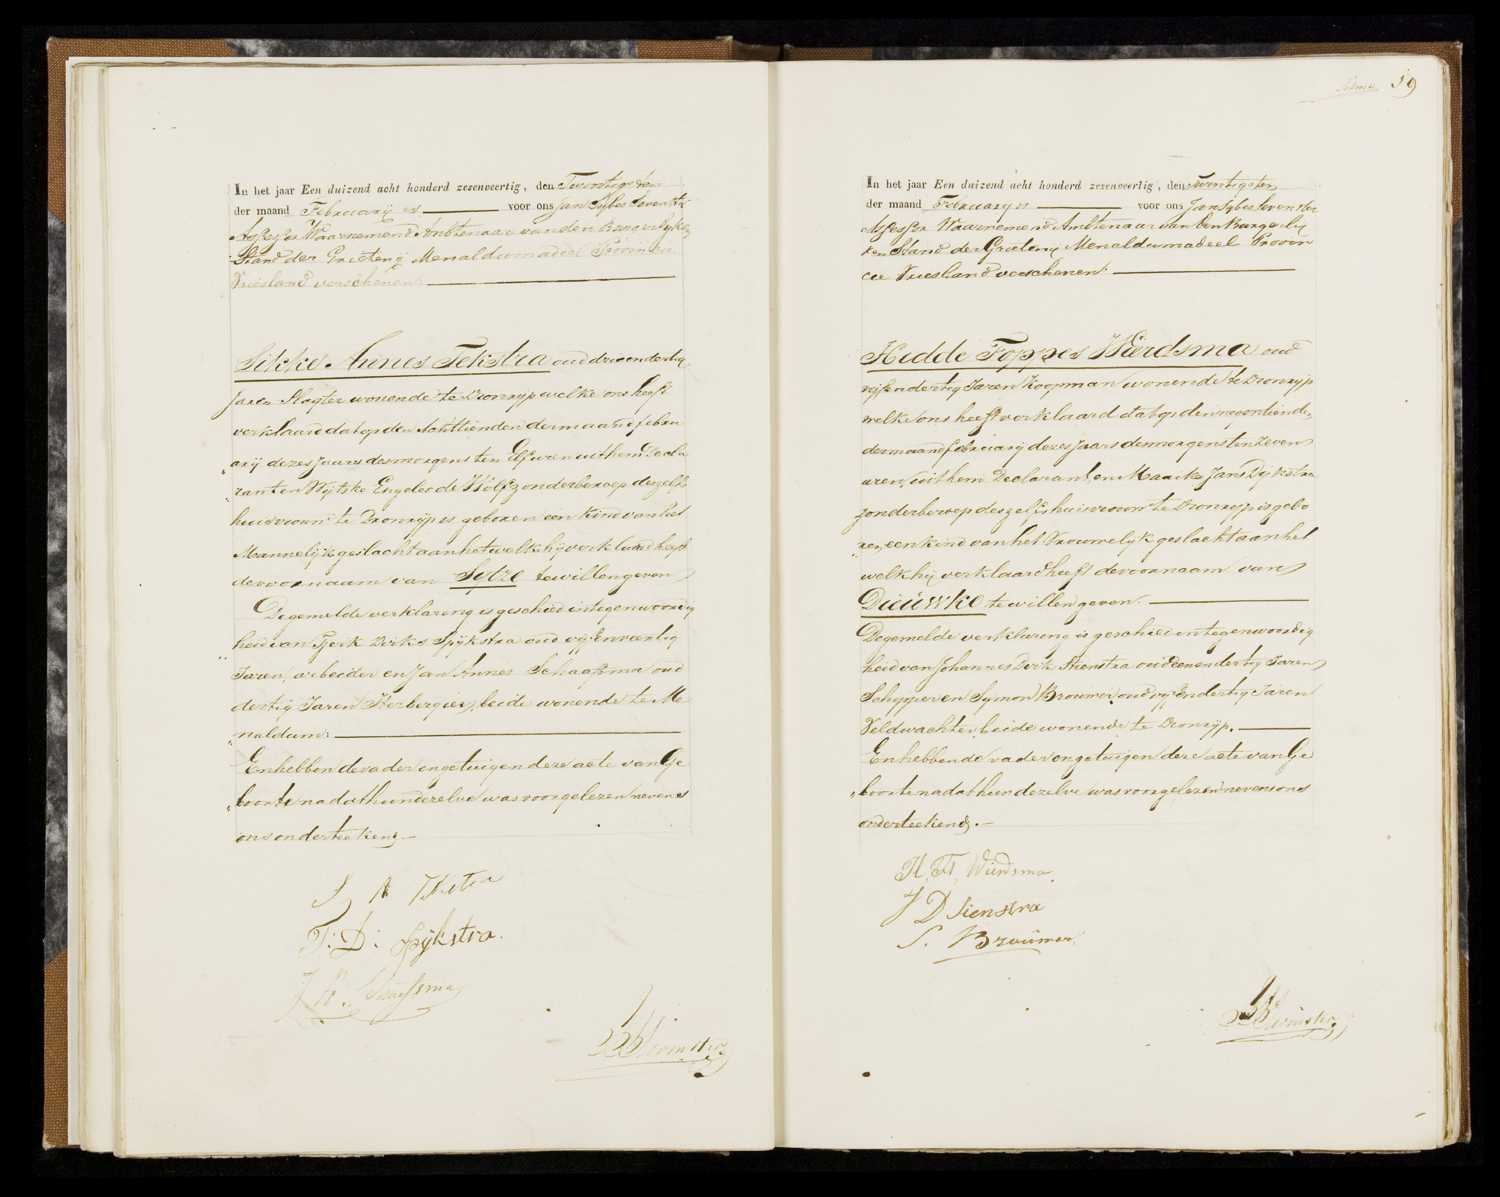 In het jaar Een duizend acht honderd zesenveertig, den Twintigsten
der maand Februarij is voor ons Jan Sybes Sevenster
Assessor Waarnemend Ambtenaar van den Burgerlyken
Stand der Grieteny Menaldumadeel Provincie
Vriesland verschenen:
Sikke Annes Tekstra oud drieendertig
Jaren Slagter wonende te Dronryp welke ons heeft
verklaard dat op den Achttienden der maand febru
arij dezes Jaars des morgens ten Elf uren uit hem Decla
rant en Wytske Engeles de Wolf zonder beroep deszelfs
huisvrouw te Dronryp is geboren een kind van het
Mannelijk geslacht aan het welk hij verklaard heeft
de voornaam van Sytze te willen geven
De gemelde verklaring is geschied in tegenwoordig
heid van Tjerk Dirks Spijkstra oud vyf en veertig
Jaren, arbeider en Jan Annes Schaafsma oud
dertig Jaren Herbergier, beide wonende te Me
naldum:
En hebben de vader en getuigen deze acte van Ge
boorte na dat hun dezelve was voorgelezen nevens
ons onderteekend
S A Tekstra
T: D: Spijkstra.
J A. Schaafsma
JS Sevenster
59
In het jaar Een duizend acht honderd zesenveertig, den Twintigsten
der maand Februarij is voor ons Jan Sybes Sevenster
Assessor Waarnemend Ambtenaar van den Burgerly
ken Stand der Grieteny Menaldumadeel Provin
cie Vriesland verschenen:
Hedde Foppes Wierdsma oud
vyf en dertig Jaren Koopman wonende te Dronryp
welke ons heeft verklaard dat op den negentienden
der maand februarij dezes Jaars des morgens ten zeven
uren, uit hem Declarant en Maaike Jans Dijkstra
zonder beroep deszelfs huisvrouw te Dronryp is gebo
ren, een kind van het Vrouwelijk geslacht aan het
welk hij verklaard heeft de voornaam van
Dieuwke te willen geven.
De gemelde verklaring is geschied in tegenwoordig
heid van Johannes Dirk Sienstra oud eenendertig Jaren
Schipper en Symon Brouwer, oud vyf en dertig Jaren
Veldwachter, beide wonende te Dronryp.
En hebben de vader en getuigen deze acte van Ge
boorte na dat hun dezelve was voorgelezen nevens ons
onderteekend.
H. F. Wierdsma.
J D Sienstra
S. Brouwer
JS Sevenster